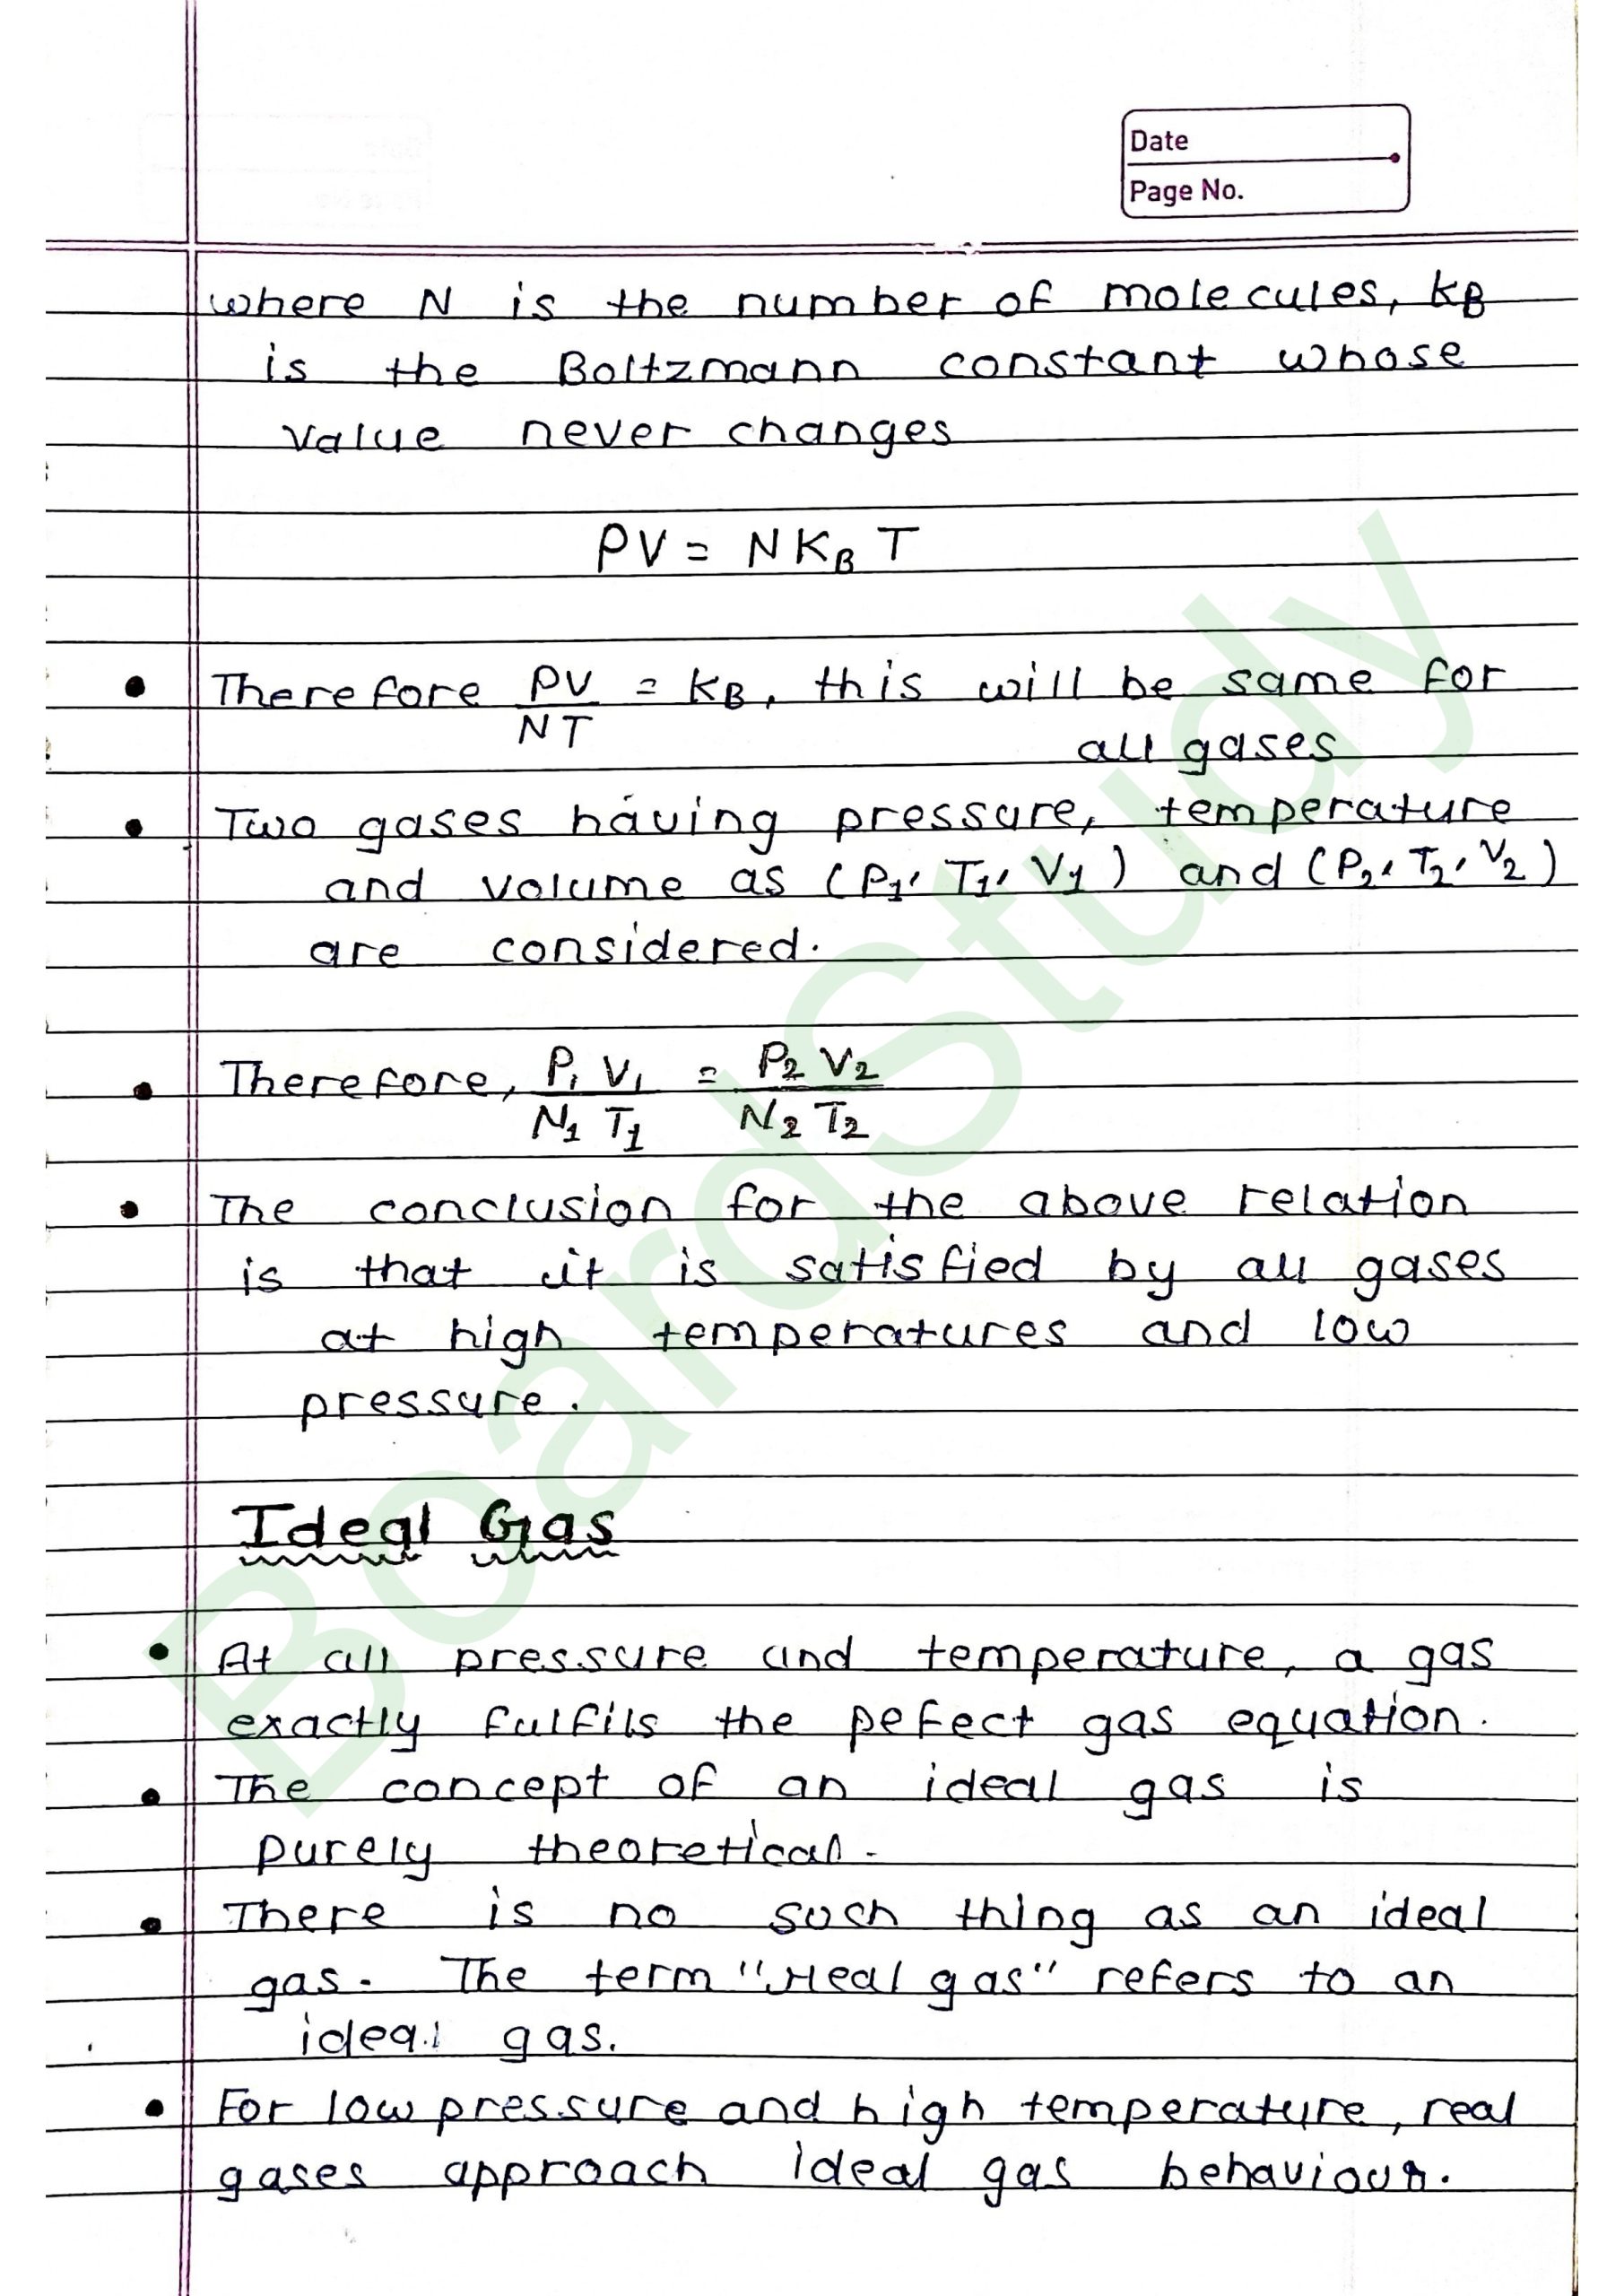 Date
Page No.
where N is the number of molecules, KB
is the Boltzmann constant whose
value never changes
PV = NKB T
• Therefore PV/NT = KB, this will be same for
all gases
• Two gases having pressure, temperature
and volume as (P1, T1, V1) and (P2, T2, V2)
are considered.
• Therefore, P1 V1/N1 T1 = P2 V2/N2 T2
• The conclusion for the above relation
is that it is satisfied by all gases
at high temperatures and low
pressure.
Ideal Gas
• At all pressure and temperature, a gas
exactly fulfils the pefect gas equation.
• The concept of an ideal gas is
purely theoretical.
• There is no such thing as an ideal
gas. The term "real gas" refers to an
ideal gas.
• For low pressure and high temperature, real
gases approach ideal gas behaviour.
BoardStudy